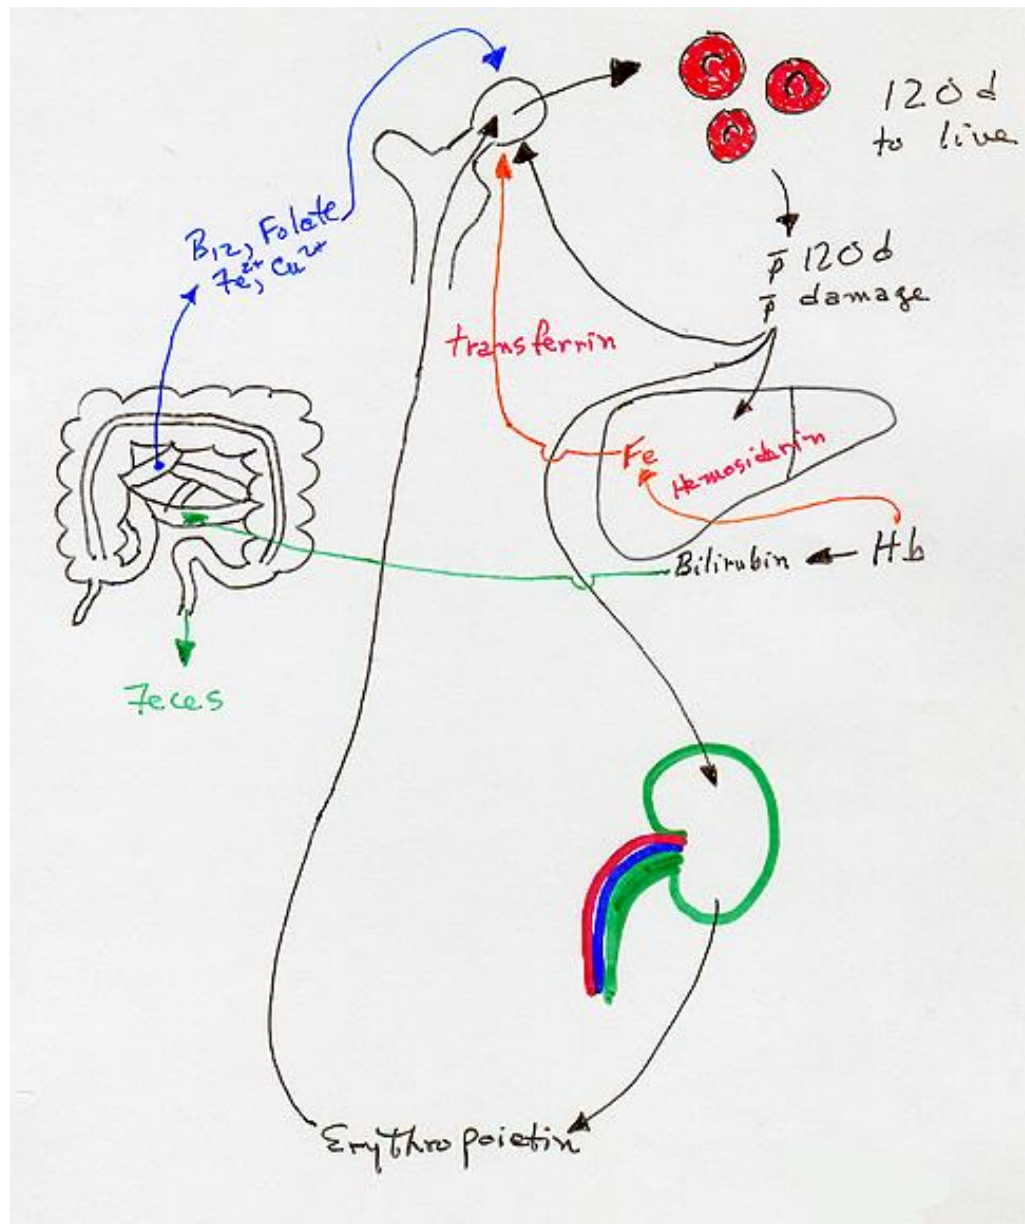 120d
to live
B12, Folate
Fe2+, Cu2+
p̄ 120d
p̄ damage
transferrin
Fe
Hemosiderin
Bilirubin
Hb
Feces
Erythropoietin